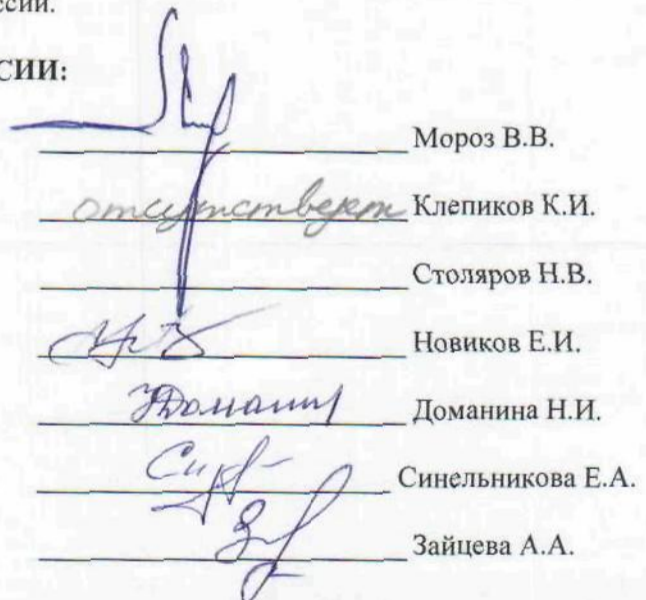 сии.
СИИ:
Мороз В.В.
отсутствует Клепиков К.И.
Столяров Н.В.
Новиков Е.И.
Доманина Н.И.
Синельникова Е.А.
Зайцева А.А.